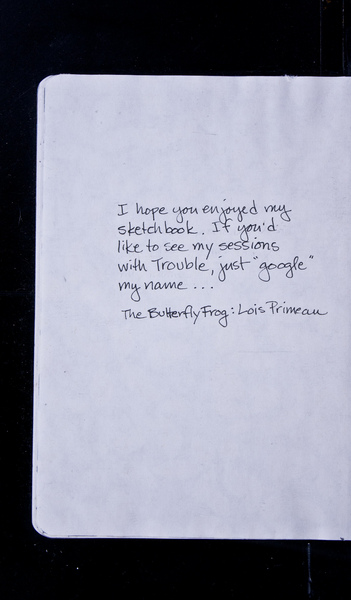 I hope you enjoyed my
sketchbook. If you'd
like to see my sessions
with Trouble, just "google"
my name ...
The Butterfly Frog: Lois Primeau